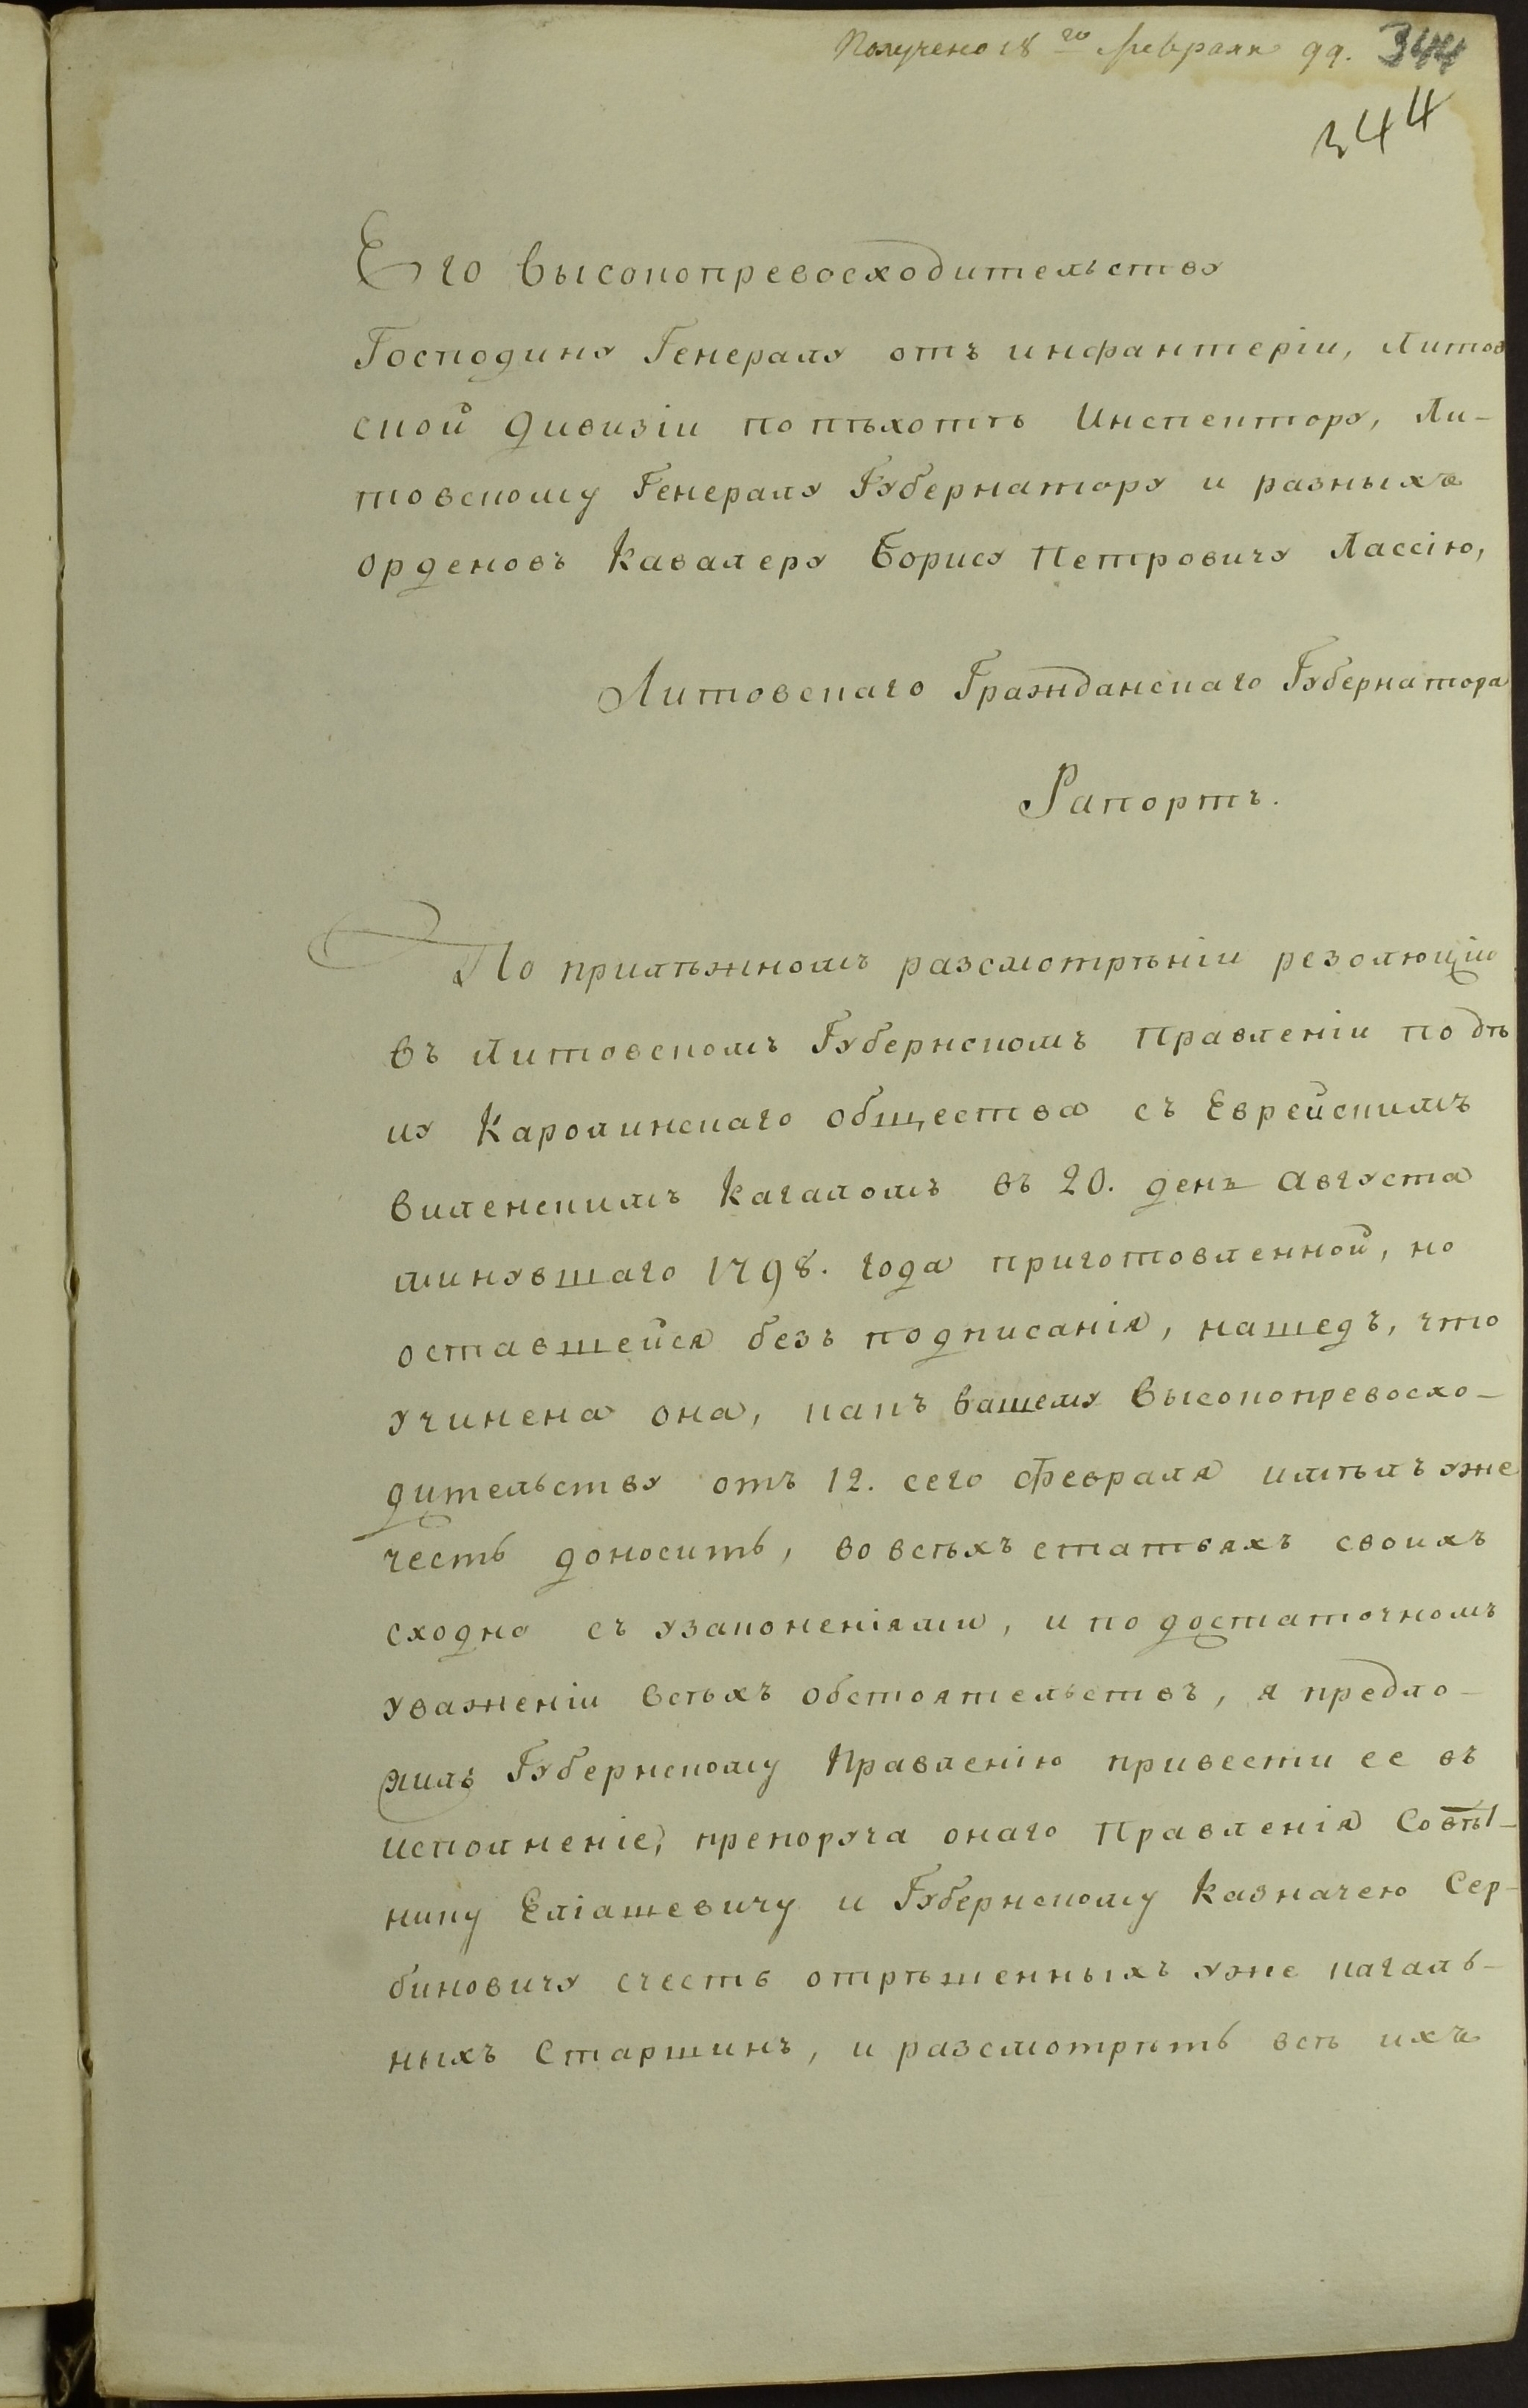 Получено 18го февраля 99. 344
344
Его Высокопревосходительству
Господину Генералу отъ инфантеріи, Литов
ской дивизіи по пѣхотѣ Инспектору, Ли-
товскому Генералу Губернатору и разныхъ
орденовъ Кавалеру Борису Петровичу Лассію,
Литовскаго Гражданскаго Губернатора
Рапортъ.
По прилѣжномъ разсмотрѣніи резолюціи
въ Литовскомъ Губернскомъ Правленіи по дѣ
лу Каролинскаго общества съ Еврейскимъ
Виленскимъ Кагаломъ въ 20. день Августа
минувшаго 1798. года приготовленной, но
оставшейся безъ подписанія, нашедъ, что
учинена она, какъ вашему Высокопревосхо-
дительству отъ 12. сего февраля имѣлъ уже
честь доносить, во всѣхъ статьяхъ своихъ
сходно съ узаконеніями, и по достаточномъ
уваженіи всѣхъ обстоятельствъ, я предло-
жилъ Губернскому Правленію привести ее въ
исполненіе, препоруча онаго Правленія Совѣт-
нику Еліашевичу и Губернскому Казначею Сер-
биновичу счесть отрѣшенныхъ уже кагаль-
ныхъ Старшинъ, и разсмотрѣть всѣ ихъ